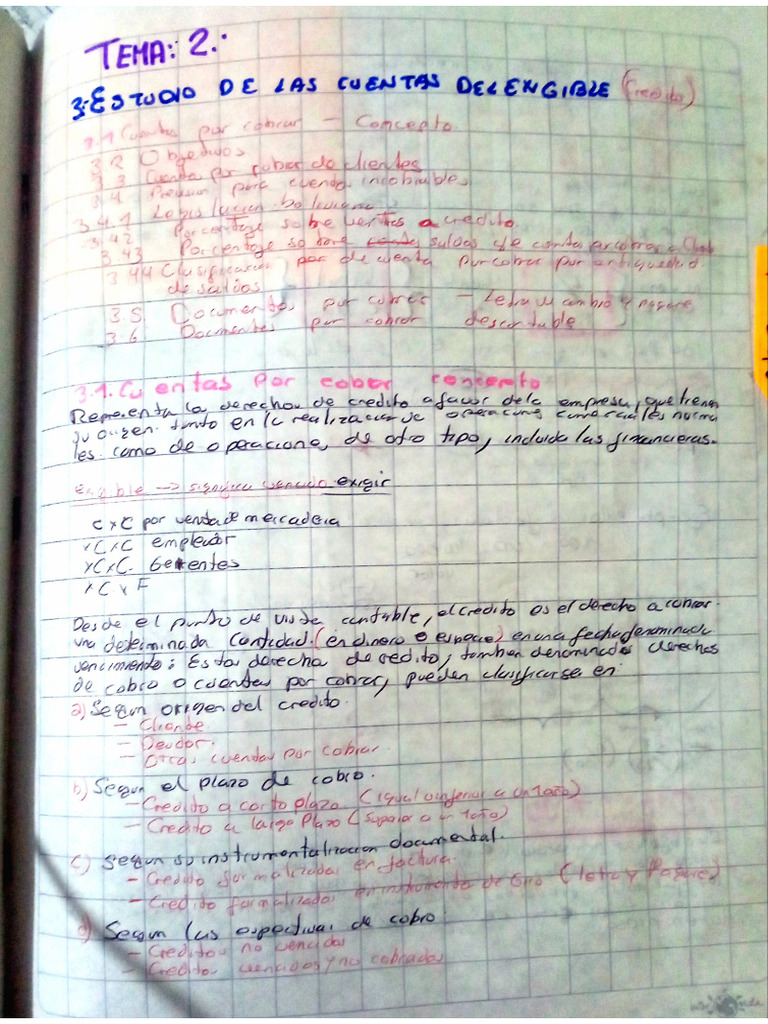 TEMA: 2.-
3.- ESTUDIO DE LAS CUENTAS DEL ENGIBLE (Credito)
3.1 Cuentas por cobrar - Concepto
3.2 Objetivos
3.3 Cuenta por cobrar de clientes
3.4 Prevision para cuenta incobrables
3.4.1 Legislacion boliviana
3.4.2 Porcentage sobre ventas a credito.
3.43 Porcentage sobre saldos de cuenta x cobrar a
3.44 Clasificacion por de cuenta por cobrar por antiguedad
de saldos
3.5 Documentos por cobrar - Letra de cambio y pagare
3.6 Documentos por cobrar descontable
3.1. Cuentas Por cobar concepto
Representa la derechos de credito a favor de la empresa, que tienen
su origen tanto en la realizacion de operacione comerciales norma
les como de operacione, de otro tipo, incluida las financieras.
Exigible → significa exigir
C x C por venta de mercaderia
x C x C empleador
x C x C. Gerentes
x C x F
Desde el punto de vista contable, el credito es el derecho a
una determinada cantidad (en dinero o especie) en una fecha denominada
vencimiento: Estos derecho de credito, tambien denominados derechos
de cobro o cuentas por cobrar, pueden clasificarse en:
a) Segun origen del credito.
- Cliente
- Deudor.
- Otras cuentas por cobrar
b) Segun el plazo de cobro.
- Credito a corto plazo (igual o inferior a un 1año)
- Credito a largo Plazo (Supeior a un 1año)
c) Segun su instrumentalizacion documental.
- Credito formalizados en factura.
- Credito formalizados en instrumento de Giro (letra y Pagare)
d) Segun las espectivas de cobro
- Creditos no vencidos
- Creditos vencidos y no cobrados